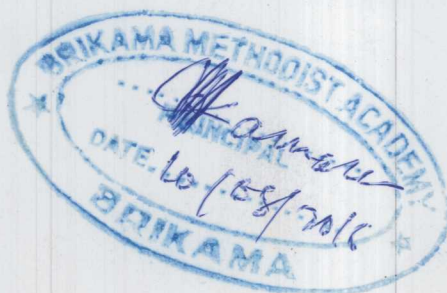 BRIKAMA METHODIST ACADEMY
PRINCIPAL
DATE. 10/08/2016
BRIKAMA